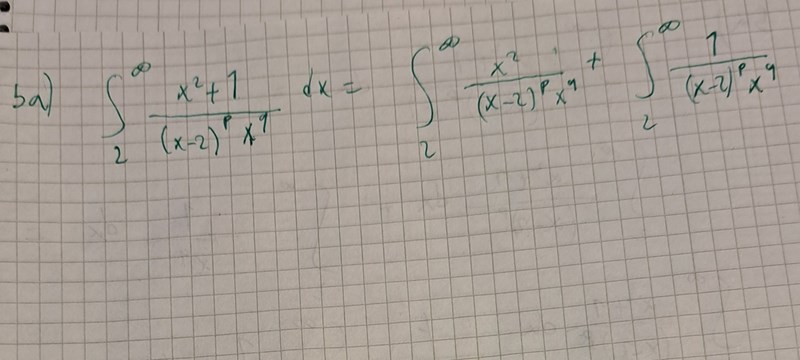 5a) ∫₂^∞ (x²+1)/((x-2)^p x^q) dx = ∫₂^∞ x²/((x-2)^p x^q) + ∫₂^∞ 1/((x-2)^p x^q)